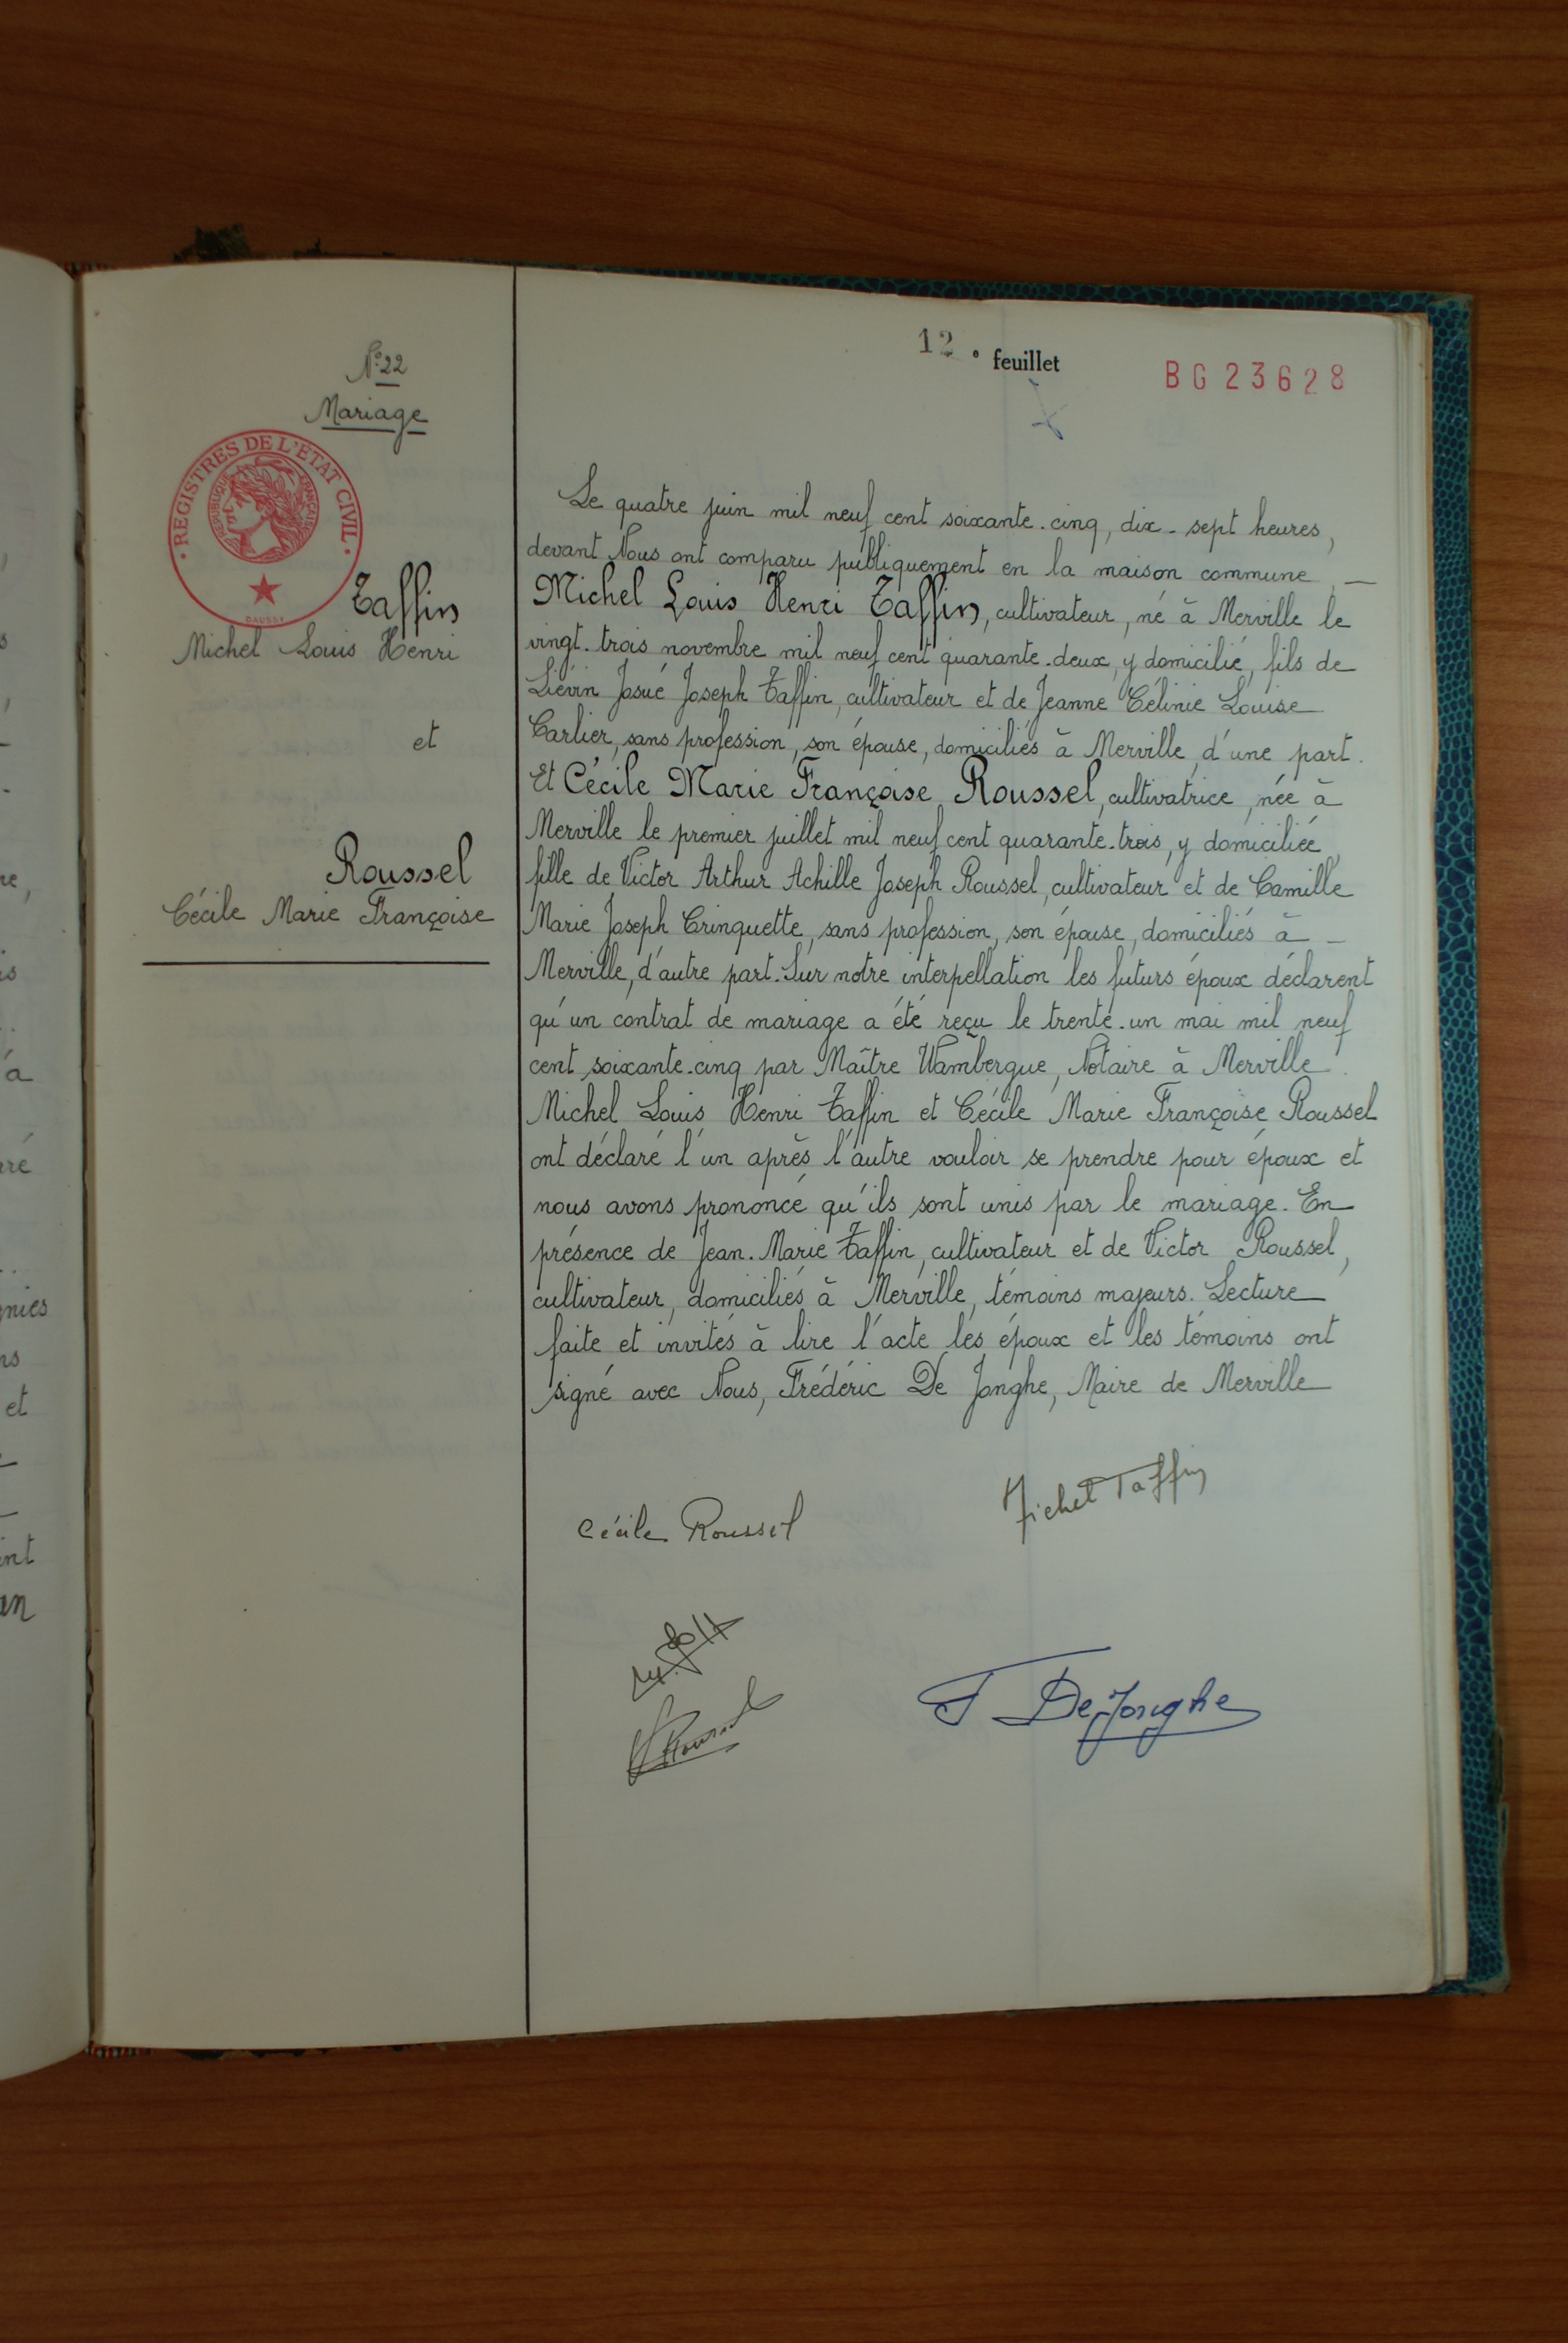 12 e feuillet
BG 23628
N° 22
Mariage
REGISTRES DE L'ÉTAT CIVIL
RÉPUBLIQUE FRANÇAISE
DAUSSY
Taffin
Michel Louis Henri
et
Roussel
Cécile Marie Françoise
Le quatre juin mil neuf cent soixante-cinq, dix-sept heures,
devant Nous ont comparu publiquement en la maison commune, —
Michel Louis Henri Taffin, cultivateur, né à Merville le
vingt-trois novembre mil neuf cent quarante-deux, y domicilié, fils de
Liévin Josué Joseph Taffin, cultivateur et de Jeanne Célinie Louise
Carlier, sans profession, son épouse, domiciliés à Merville, d'une part.
Et Cécile Marie Françoise Roussel, cultivatrice, née à
Merville le premier juillet mil neuf cent quarante-trois, y domiciliée,
fille de Victor Arthur Achille Joseph Roussel, cultivateur et de Camille
Marie Joseph Crinquette, sans profession, son épouse, domiciliés à —
Merville, d'autre part. Sur notre interpellation les futurs époux déclarent
qu'un contrat de mariage a été reçu le trente-un mai mil neuf
cent soixante-cinq par Maître Wambergue, Notaire à Merville.
Michel Louis Henri Taffin et Cécile Marie Françoise Roussel
ont déclaré l'un après l'autre vouloir se prendre pour époux et
nous avons prononcé qu'ils sont unis par le mariage. En
présence de Jean-Marie Taffin, cultivateur et de Victor Roussel,
cultivateur, domiciliés à Merville, témoins majeurs. Lecture
faite et invités à lire l'acte les époux et les témoins ont
signé avec Nous, Frédéric De Jonghe, Maire de Merville
Cécile Roussel
Michel Taffin
V Roussel
F DeJonghe